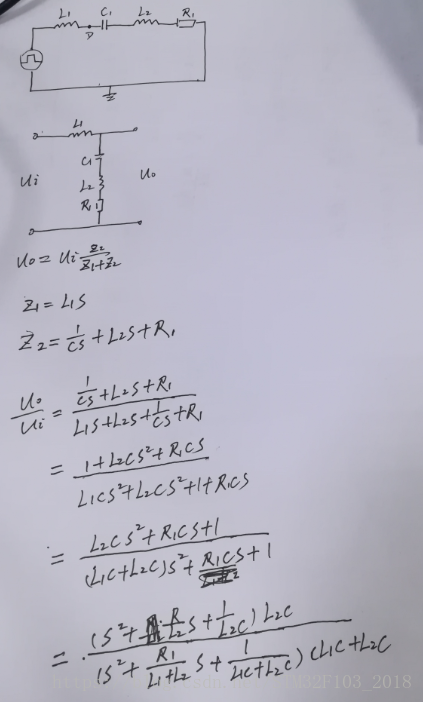 L₁ C₁ L₂ R₁
D
L₁
C₁
Ui L₂ Uo
R₁
Uo = Ui Z₂/(Z₁+Z₂)
Z₁ = L₁S
Z₂ = 1/CS + L₂S + R₁
Uo/Ui = (1/CS + L₂S + R₁)/(L₁S + L₂S + 1/CS + R₁)
= (1 + L₂CS² + R₁CS)/(L₁CS² + L₂CS² + 1 + R₁CS)
= (L₂CS² + R₁CS + 1)/((L₁C + L₂C)S² + R₁CS + 1)
= (S² + R/L₂ S + 1/L₂C) L₂C/(S² + R₁/(L₁+L₂) S + 1/(L₁C+L₂C)) (L₁C + L₂C
32F103_2018